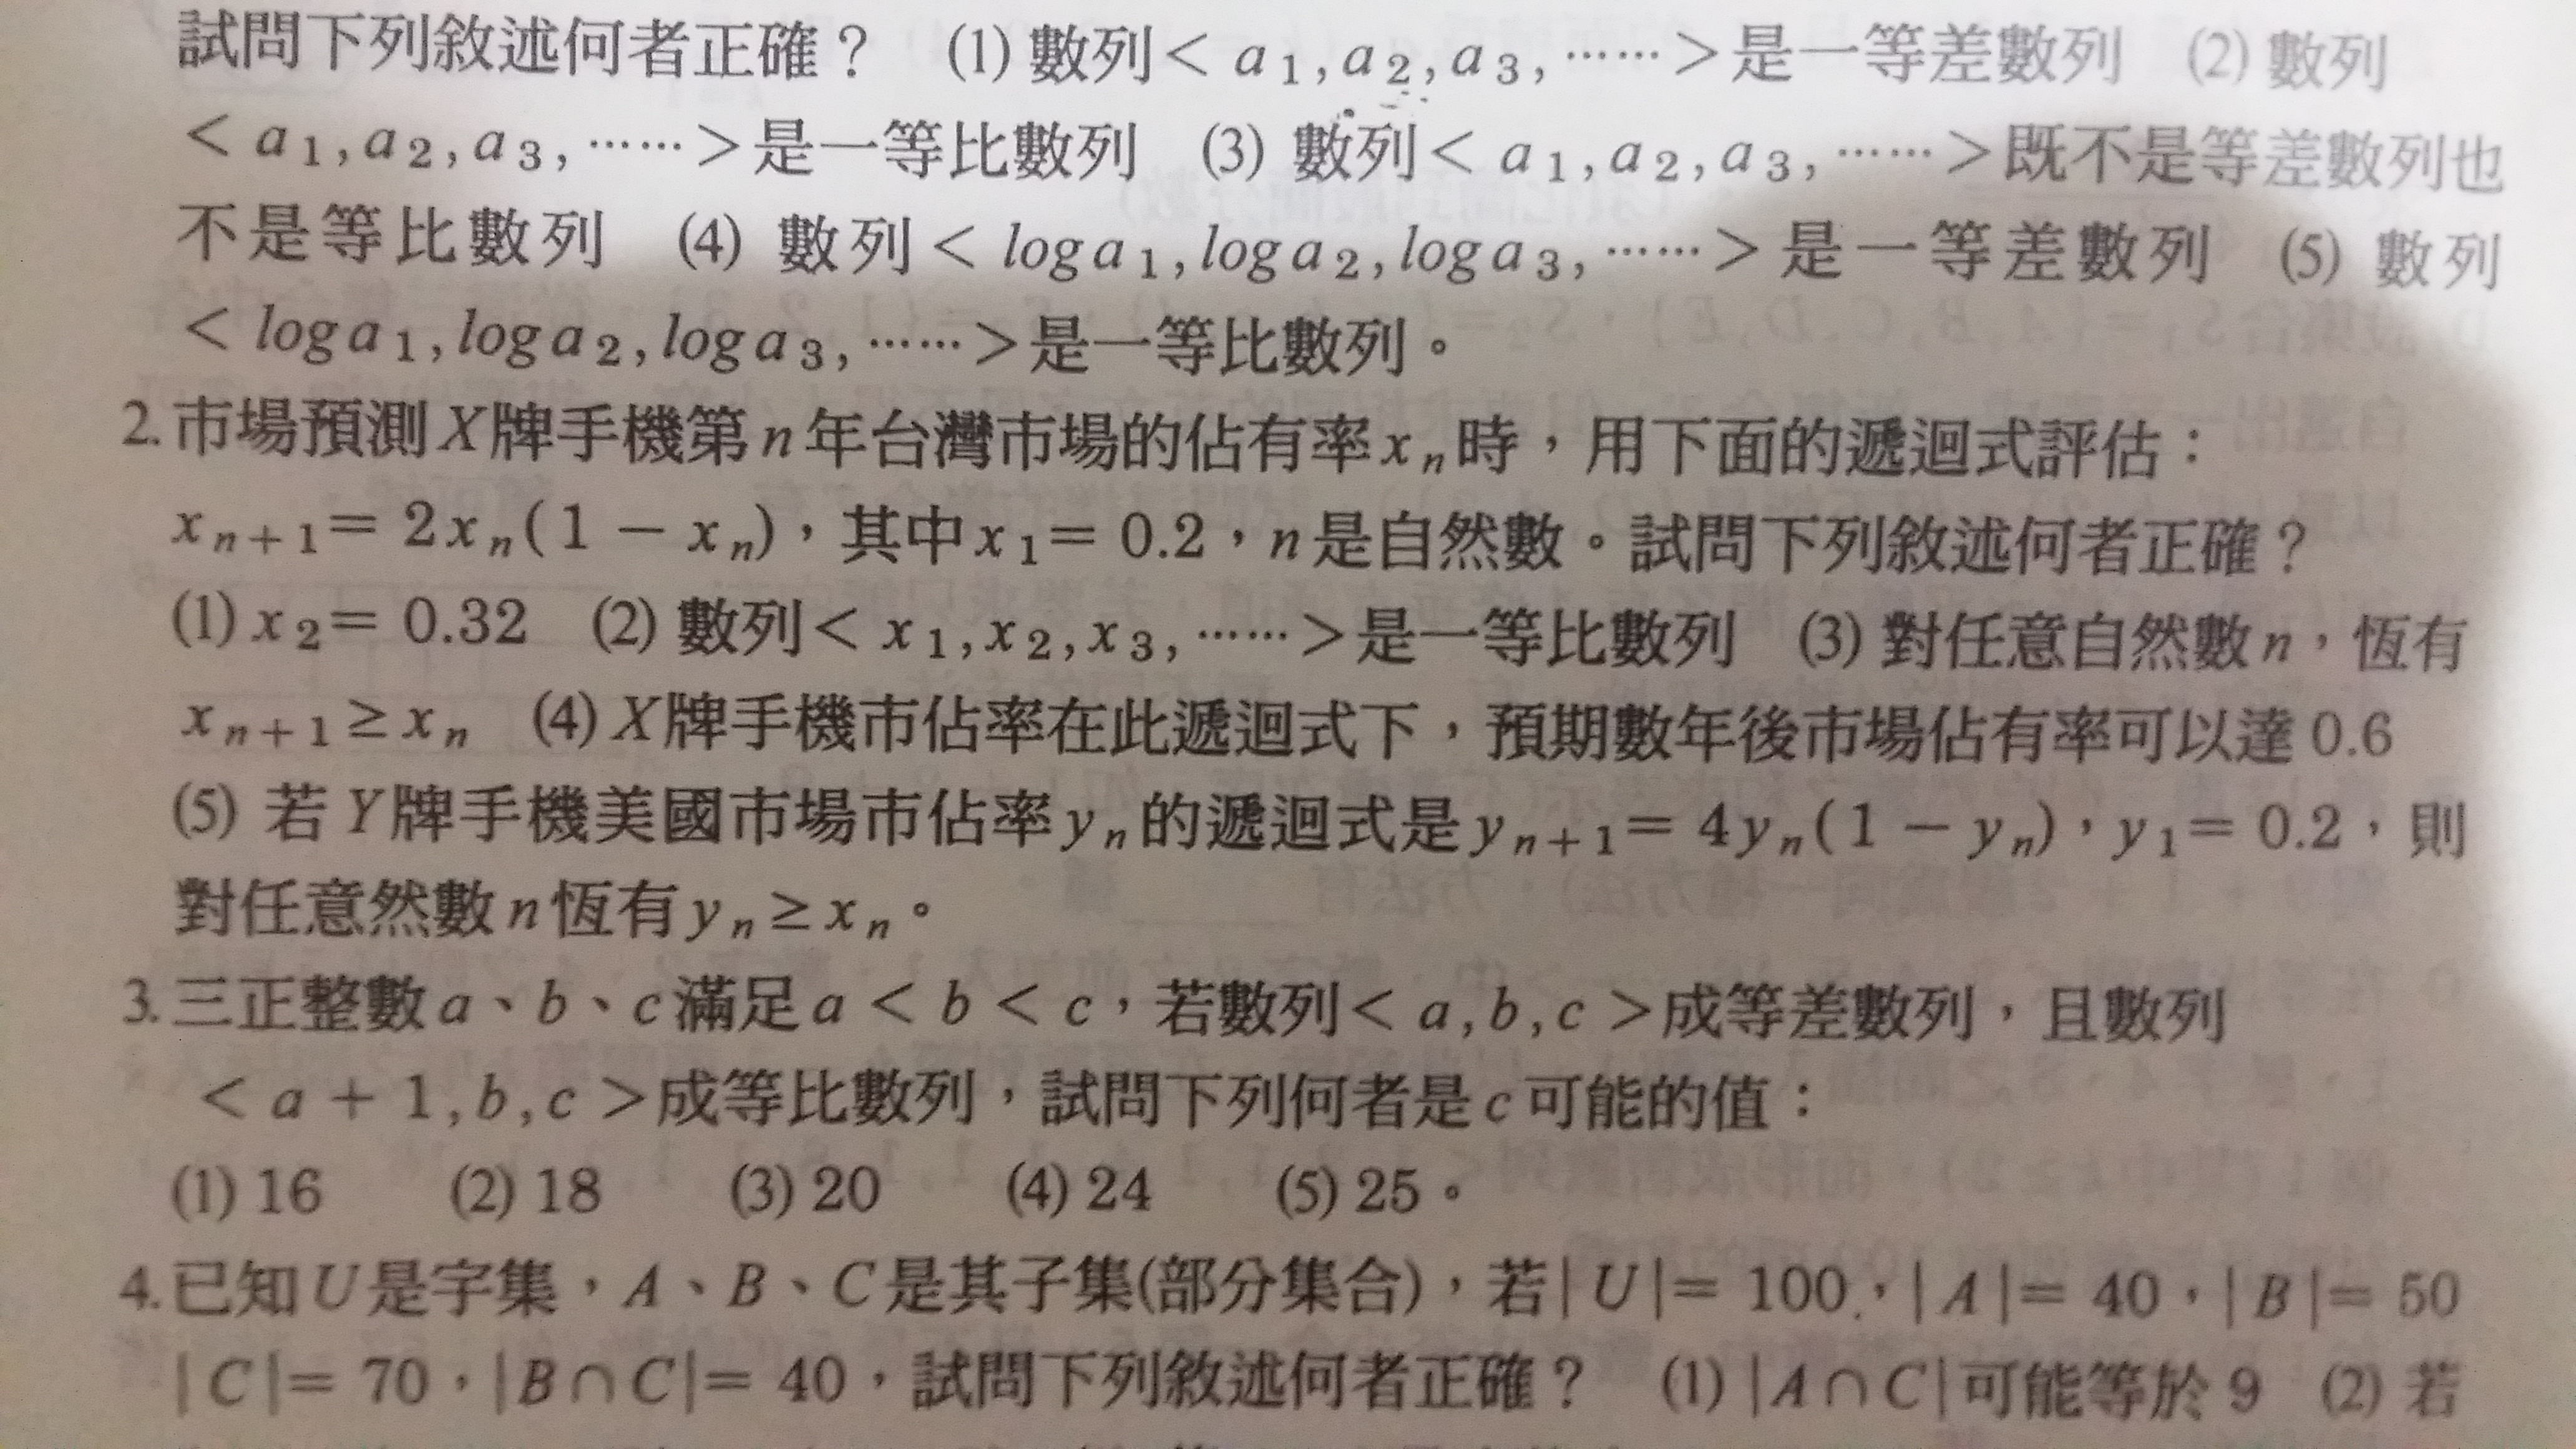 試問下列敘述何者正確？ (1) 數列< a₁, a₂, a₃, ……>是一等差數列 (2) 數列
< a₁, a₂, a₃, ……>是一等比數列 (3) 數列< a₁, a₂, a₃, ……>既不是等差數列也
不是等比數列 (4) 數列< log a₁, log a₂, log a₃, ……>是一等差數列 (5) 數列
< log a₁, log a₂, log a₃, ……>是一等比數列。
2. 市場預測X牌手機第n年台灣市場的佔有率xₙ時，用下面的遞迴式評估：
xₙ₊₁= 2xₙ(1 − xₙ)，其中x₁= 0.2，n是自然數。試問下列敘述何者正確？
(1) x₂= 0.32 (2) 數列< x₁, x₂, x₃, ……>是一等比數列 (3) 對任意自然數n，恆有
xₙ₊₁≥xₙ (4) X牌手機市佔率在此遞迴式下，預期數年後市場佔有率可以達0.6
(5) 若Y牌手機美國市場市佔率yₙ的遞迴式是yₙ₊₁= 4yₙ(1 − yₙ)，y₁= 0.2，則
對任意然數n恆有yₙ≥xₙ。
3. 三正整數a、b、c滿足a < b < c，若數列< a, b, c >成等差數列，且數列
< a + 1, b, c >成等比數列，試問下列何者是c可能的值：
(1) 16 (2) 18 (3) 20 (4) 24 (5) 25。
4. 已知U是宇集，A、B、C是其子集(部分集合)，若| U |= 100，| A |= 40，| B |= 50
| C |= 70，|B∩C|= 40，試問下列敘述何者正確？ (1) |A∩C|可能等於9 (2) 若